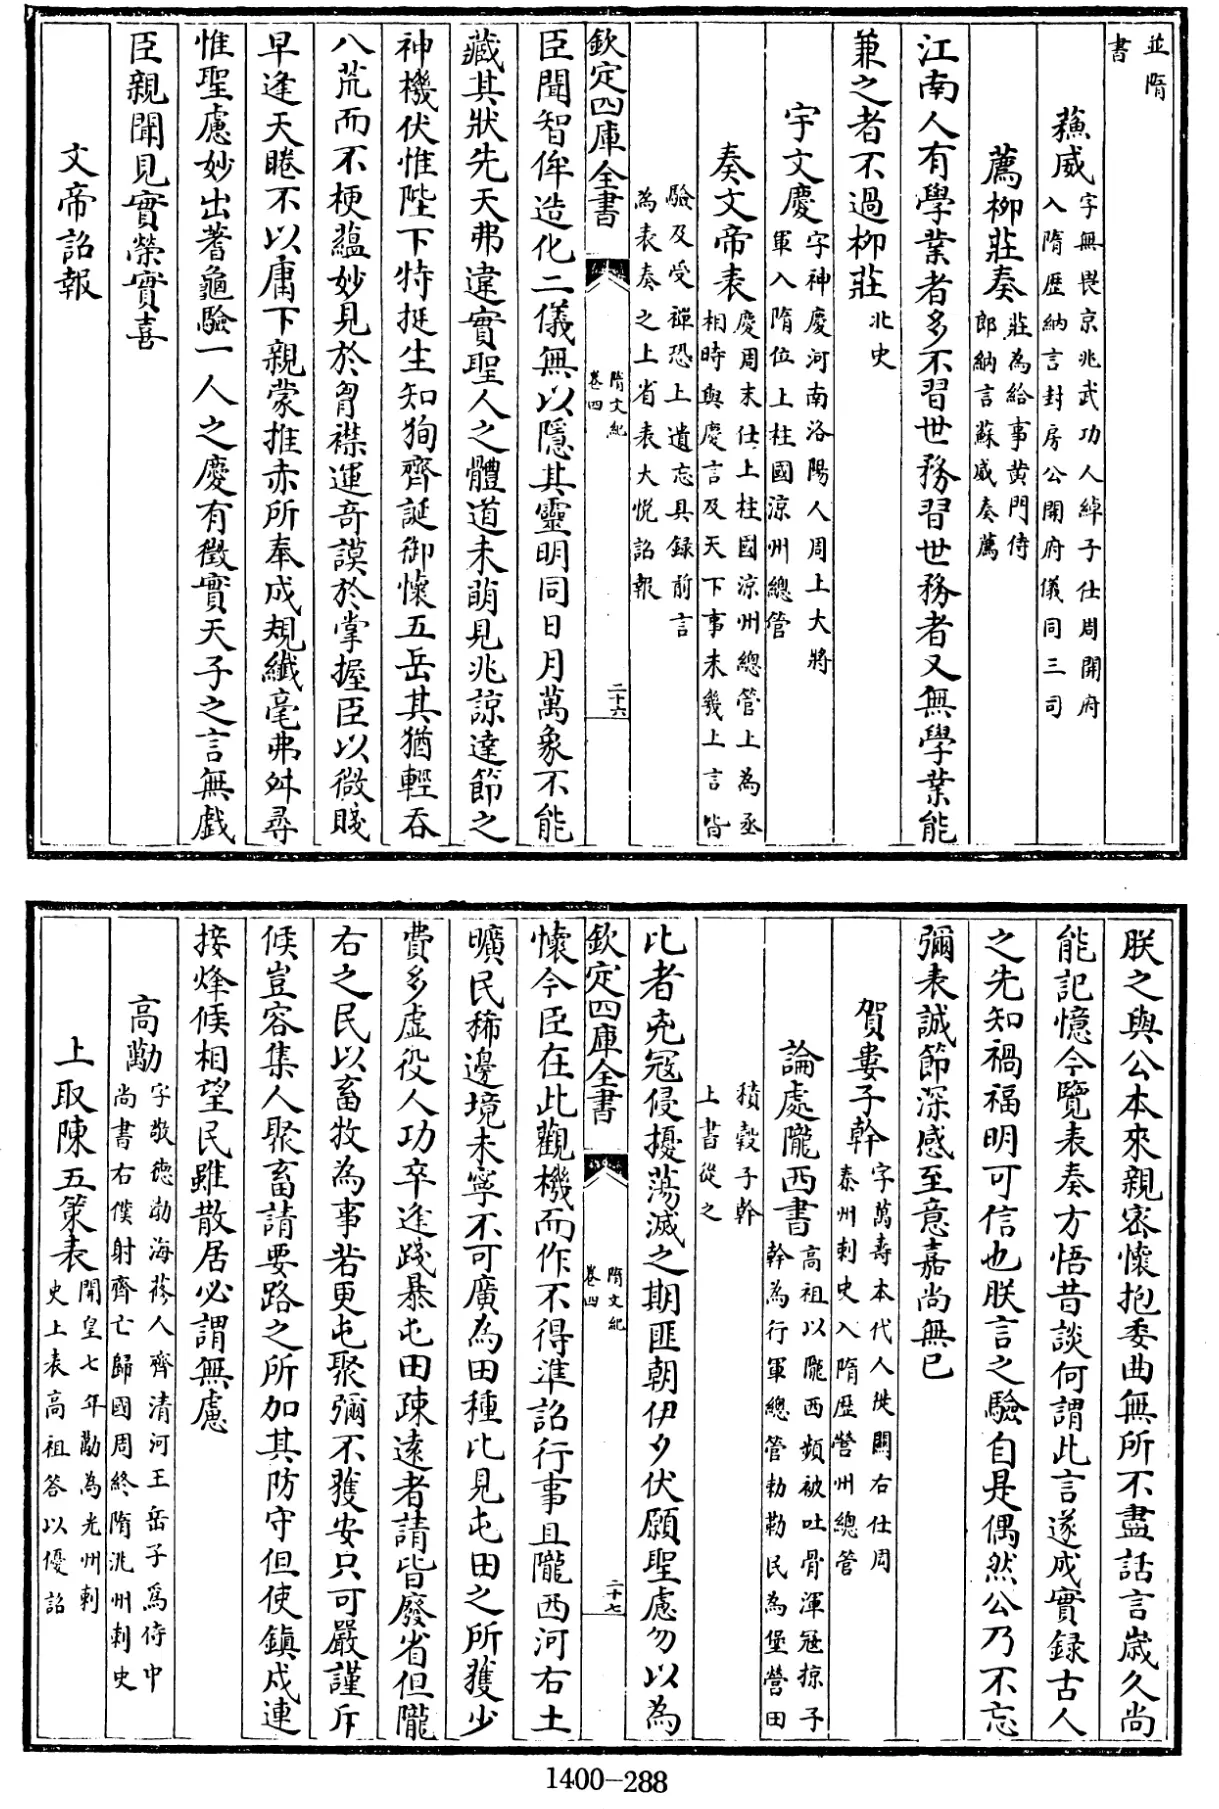 並隋
書
蘓威字無畏京兆武功人綽子仕周開府
入隋歴納言封房公開府儀同三司
薦柳莊奏莊為給事黄門侍
郎納言蘇威奏薦
江南人有學業者多不習世務習世務者又無學業能
兼之者不過柳莊北史
宇文慶字神慶河南洛陽人周上大將
軍入隋位上柱國涼州總管
奏文帝表慶周末仕上柱國涼州總管上為丞
相時與慶言及天下事未幾上言皆
驗及受禪恐上遺忘具録前言
為表奏之上省表大悦詔報
欽定四庫全書
隋文紀
卷四
二十六
臣聞智侔造化二儀無以隱其靈明同日月萬象不能
藏其狀先天弗違實聖人之體道未萌見兆諒達節之
神機伏惟陛下特挺生知狥齊誕御懷五岳其猶輕吞
八荒而不梗藴妙見於胷襟運奇謨於掌握臣以微賤
早逢天睠不以庸下親蒙推赤所奉成規纎毫弗舛尋
惟聖慮妙出蓍龜驗一人之慶有徵實天子之言無戲
臣親聞見實榮實喜
文帝詔報
朕之與公本來親密懷抱委曲無所不盡話言歳久尚
能記憶今覽表奏方悟昔談何謂此言遂成實録古人
之先知禍福明可信也朕言之驗自是偶然公乃不忘
彌表誠節深感至意嘉尚無已
賀婁子幹字萬壽本代人徙關右仕周
秦州刺史入隋歴營州總管
論處隴西書高祖以隴西頻被吐骨渾冦掠子
幹為行軍總管勅勒民為堡營田
積穀子幹
上書從之
比者兇冦侵擾蕩滅之期匪朝伊夕伏願聖慮勿以為
欽定四庫全書
隋文紀
卷四
二十七
懷今臣在此觀機而作不得準詔行事且隴西河右土
曠民稀邊境未寧不可廣為田種比見屯田之所獲少
費多虚役人功卒逢踐暴屯田疎遠者請皆廢省但隴
右之民以畜牧為事若更屯聚彌不獲安只可嚴謹斥
候豈容集人聚畜請要路之所加其防守但使鎮戍連
接烽候相望民雖散居必謂無慮
高勱字敬徳渤海蓨人齊清河王岳子爲侍中
尚書右僕射齊亡歸國周終隋洮州刺史
上取陳五策表開皇七年勱為光州刺
史上表高祖答以優詔
1400-288